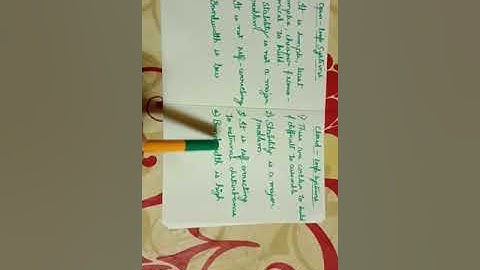 Open-loop Systems
It is simple, least
complex, cheaper & econo-
mical to build
Stability is not a major
problem.
It is not self-correcting
Bandwidth is low
Closed-loop systems
1) They are costlier to build
& difficult to
2) Stability is a major
problem
3) It is self correcting
to external disturbances
4) Bandwidth is high